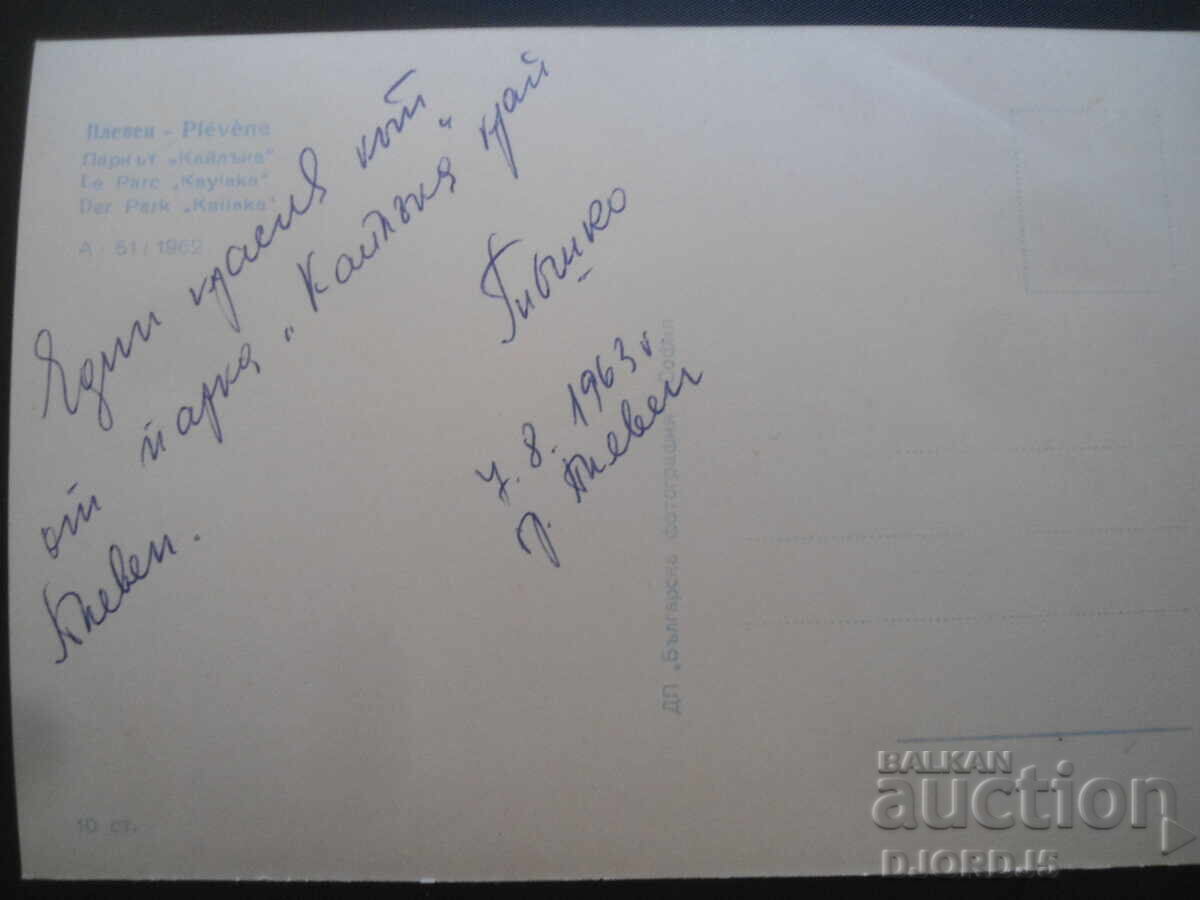 Плевен - Plévène
Паркът „Кайлъка“
Le Parc „Kaylaka“
Der Park „Kailaka“
А - 51 / 1962
Един красив кът
от парка „Кайлъка“ край
Плевен.
7. 8. 1963 г.
гр. Плевен
ДП „Българска фотография“ София
10 ст.
BALKAN
auction
DJORDJ5